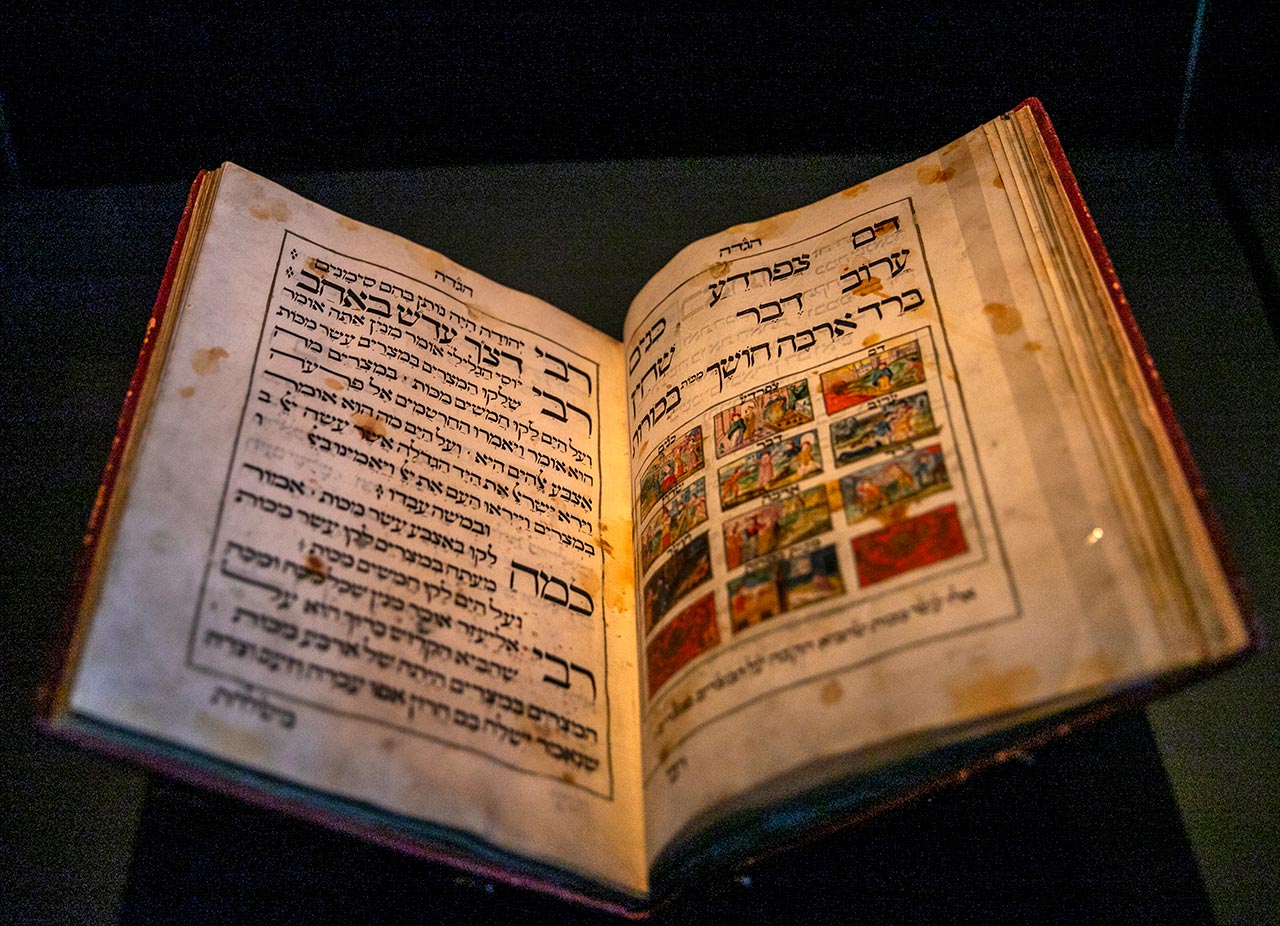 הגדה
דם צפרדע כנים
ערוב דבר שחין
ברד ארבה חושך מכות בכורות
דם צפרדע כנים
ערוב דבר
ארבה
אלו עשר מכות שהביא הקבה על המצרים
רבי
הגדה
רבי יהודה היה נותן בהם סימנים
דצך עדש באחב
רבי יוסי הגלילי אומר מנין אתה אומר
שלקו המצרים במצרים עשר מכות
ועל הים לקו חמשים מכות . במצרים מה
הוא אומר ויאמרו החרטמים אל פרעה
אצבע אלהים היא . ועל הים מה הוא אומר
וירא ישראל את היד הגדלה אשר עשה יי ב
במצרים וייראו העם את יי ויאמינו ביי ו
ובמשה עבדו :
כמה לקו באצבע עשר מכות . אמור
מעתה במצרים לקו עשר מכות
ועל הים לקו חמשים מכות :
רבי אליעזר אומר מנין שכל מכה ומכה
שהביא הקדוש ברוך הוא על
המצרים במצרים היתה של ארבע מכות
שנאמר ישלח בם חרון אפו עברה וזעם וצרה
משלחת